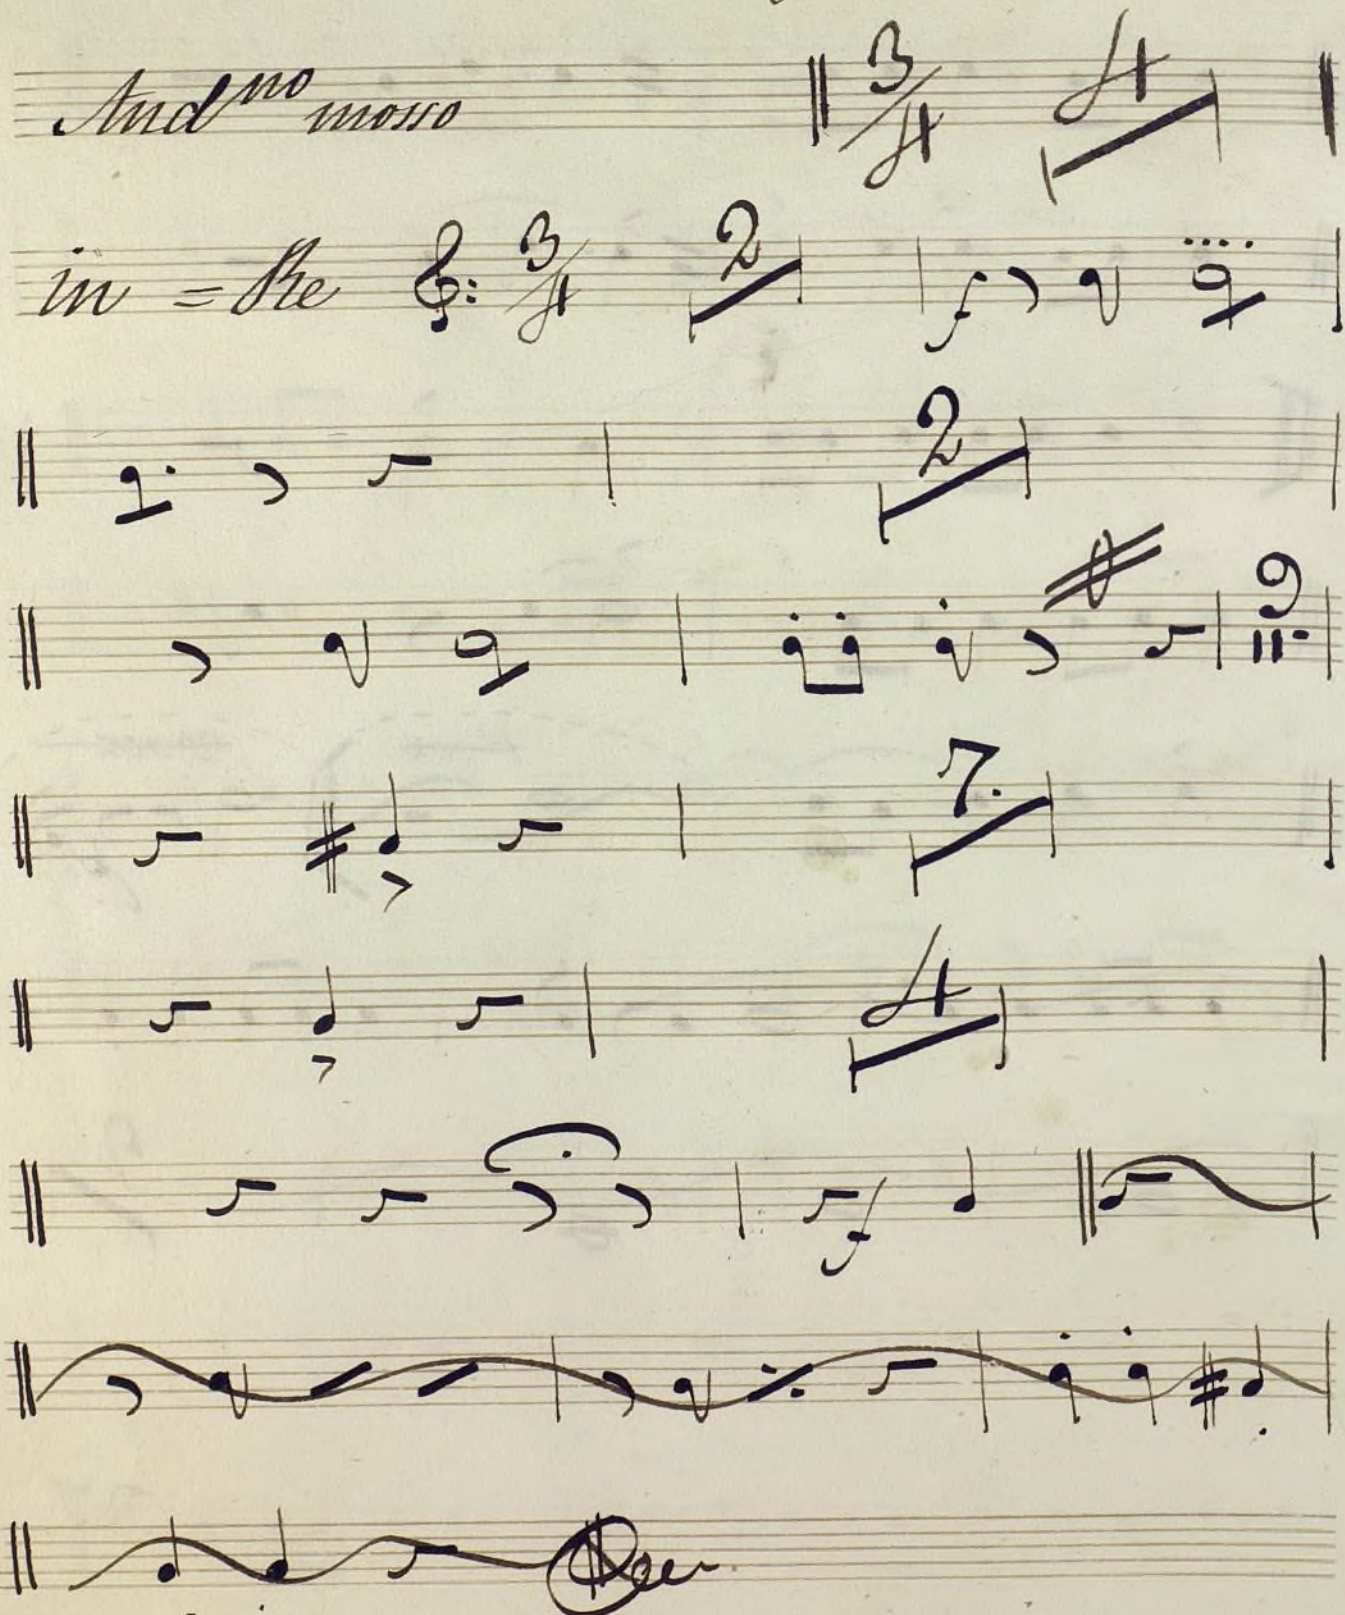 And.no mosso 3/4 4
in = Re 3/4 2 f
2
9
7.
4
f